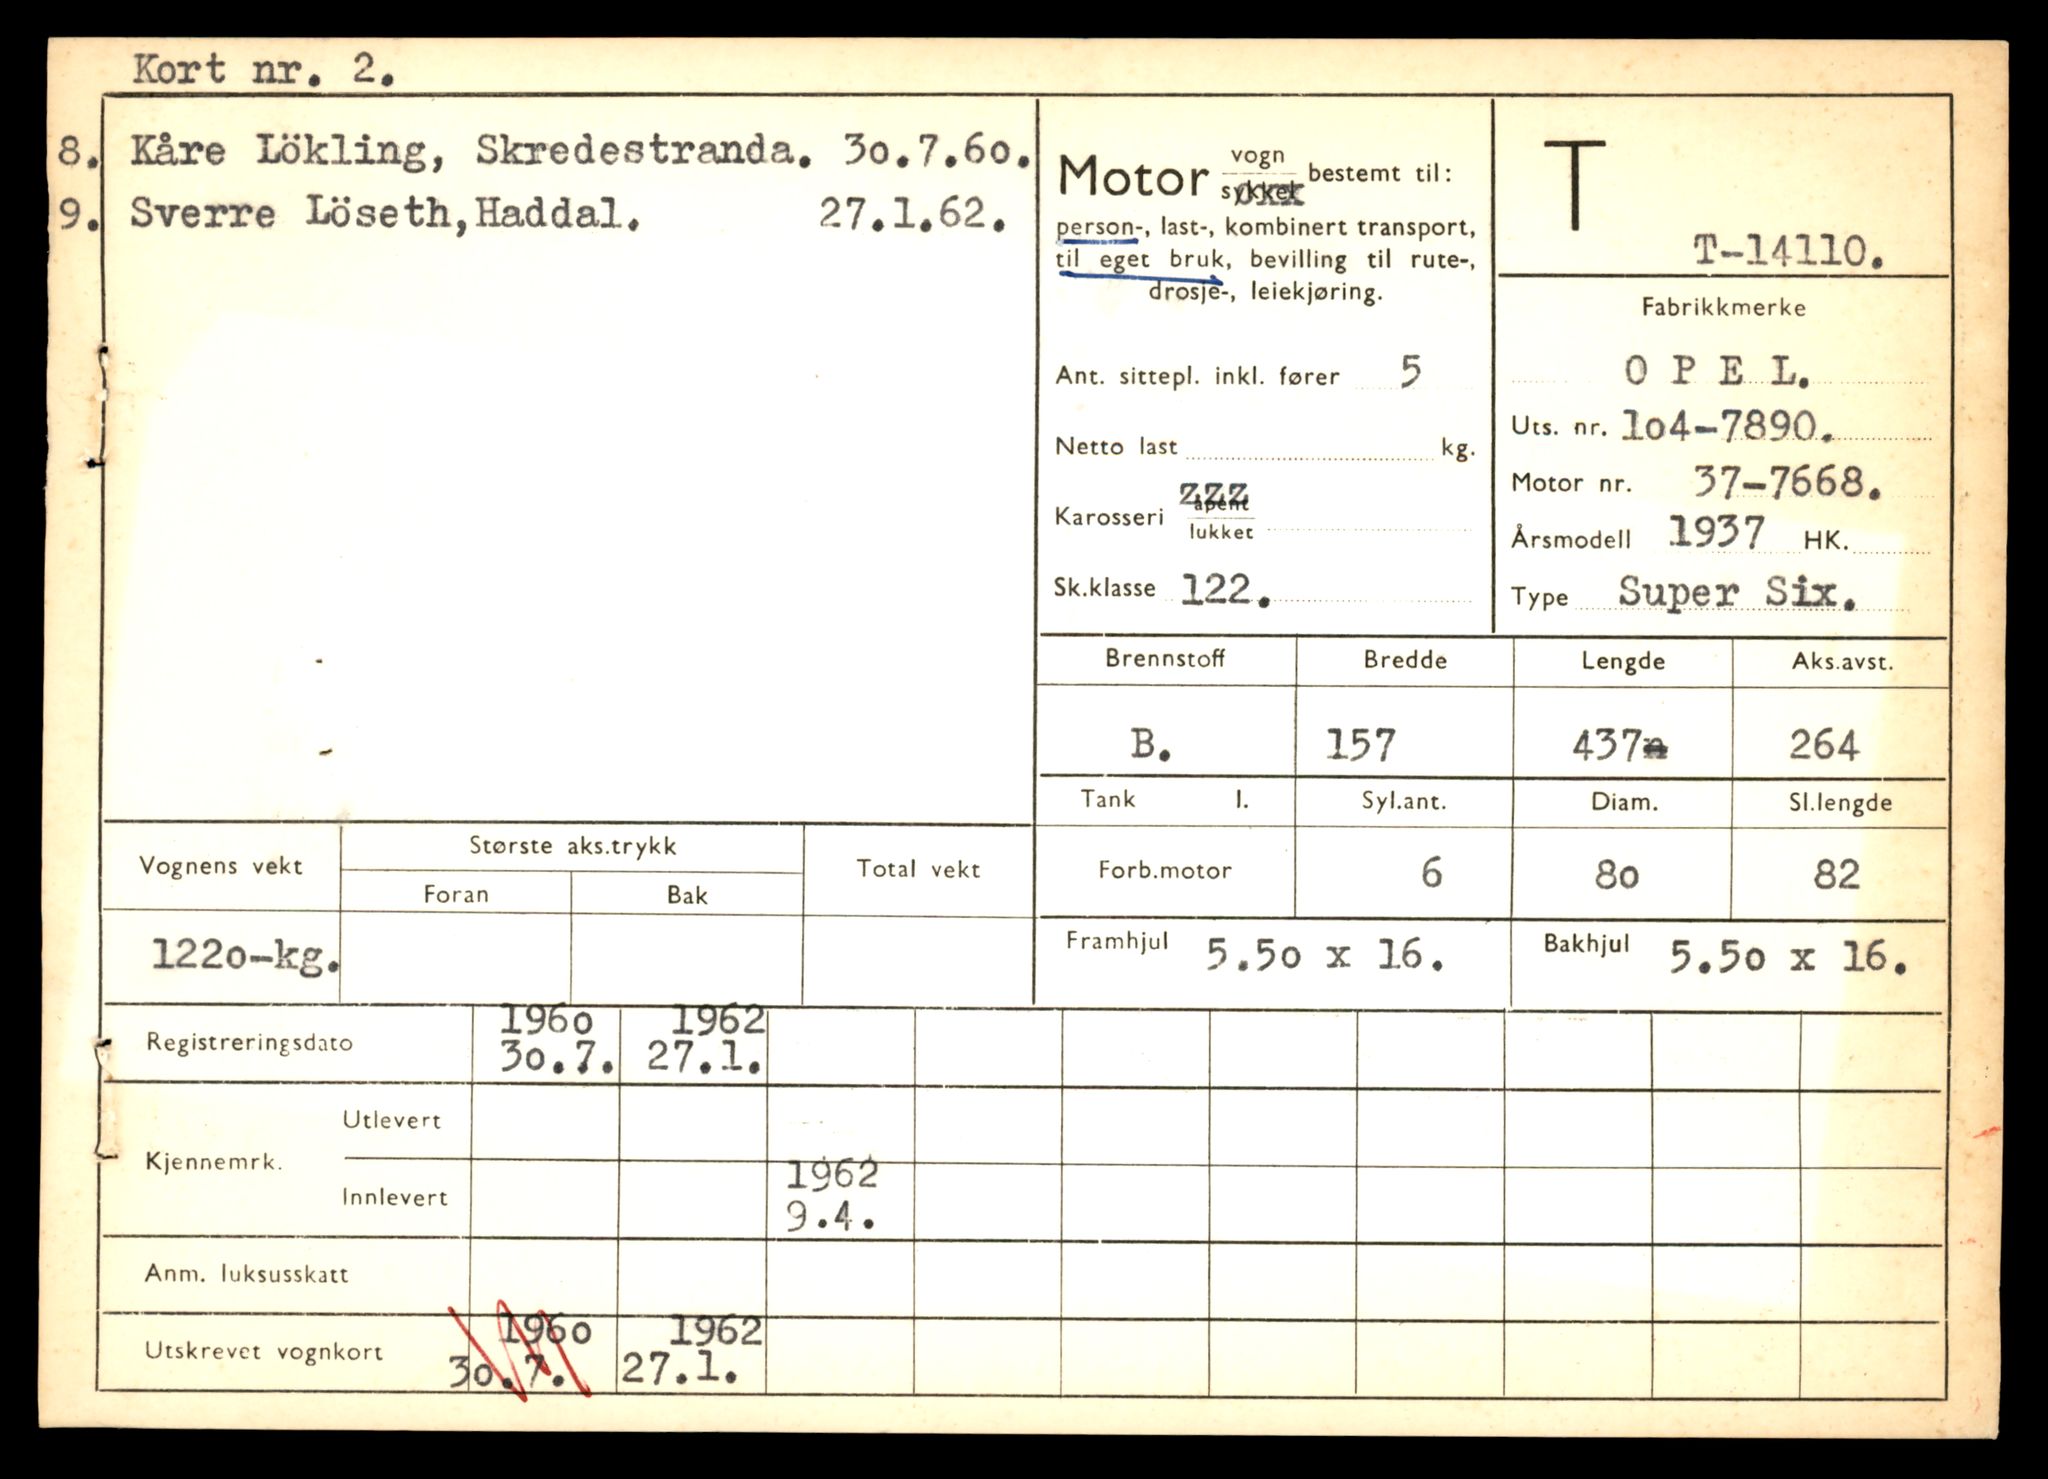 Kort nr. 2.
8. Kåre Lökling, Skredestranda. 3o.7.6o.
9. Sverre Löseth, Haddal. 27.1.62.
Motor vogn sykkel bestemt til:
person-, last-, kombinert transport,
til eget bruk, bevilling til rute-,
drosje-, leiekjøring.
Ant. sittepl. inkl. fører 5
Netto last kg.
Karosseri åpent lukket
Sk.klasse 122.
T
T-14110.
Fabrikkmerke
O P E L.
Uts. nr. 1o4-7890.
Motor nr. 37-7668.
Årsmodell 1937 HK.
Type Super Six.
Brennstoff Bredde Lengde Aks.avst.
B. 157 437 264
Tank l. Syl.ant. Diam. Sl.lengde
Forb.motor 6 8o 82
Framhjul 5.5o x 16. Bakhjul 5.5o x 16.
Vognens vekt Største aks.trykk Total vekt
Foran Bak
122o-kg.
Registreringsdato 196o 1962
3o.7. 27.1.
Kjennemrk. Utlevert
Innlevert 1962
9.4.
Anm. luksusskatt
Utskrevet vognkort 196o 1962
3o.7. 27.1.